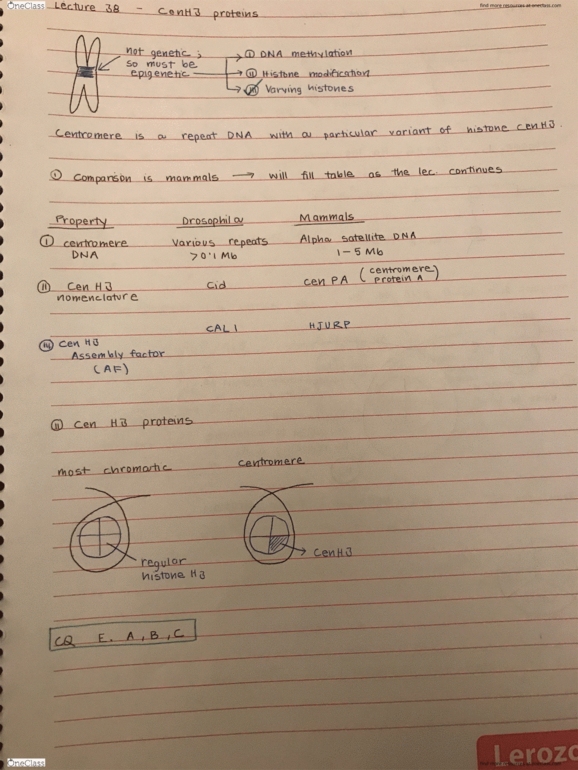 OneClass
find more resources at oneclass.com
Lecture 38 - CenH3 proteins
not genetic ; → ① DNA methylation
so must be
epigenetic → ⑪ Histone modification
→ ⑪i Varying histones
Centromere is a repeat DNA with a particular variant of histone cenH3.
① Comparison is mammals → will fill table as the lec continues
Property Drosophila Mammals
① centromere various repeats Alpha satellite DNA
DNA >0.1 Mb 1-5 Mb
⑪ Cen H3 Cid cen PA (centromere protein A)
nomenclature
CAL 1 HJURP
⑪i Cen H3
Assembly factor
(AF)
⑪ Cen H3 proteins
most chromartic centromere
regular → CenH3
histone H3
CQ E. A, B, C
OneClass
Leroz